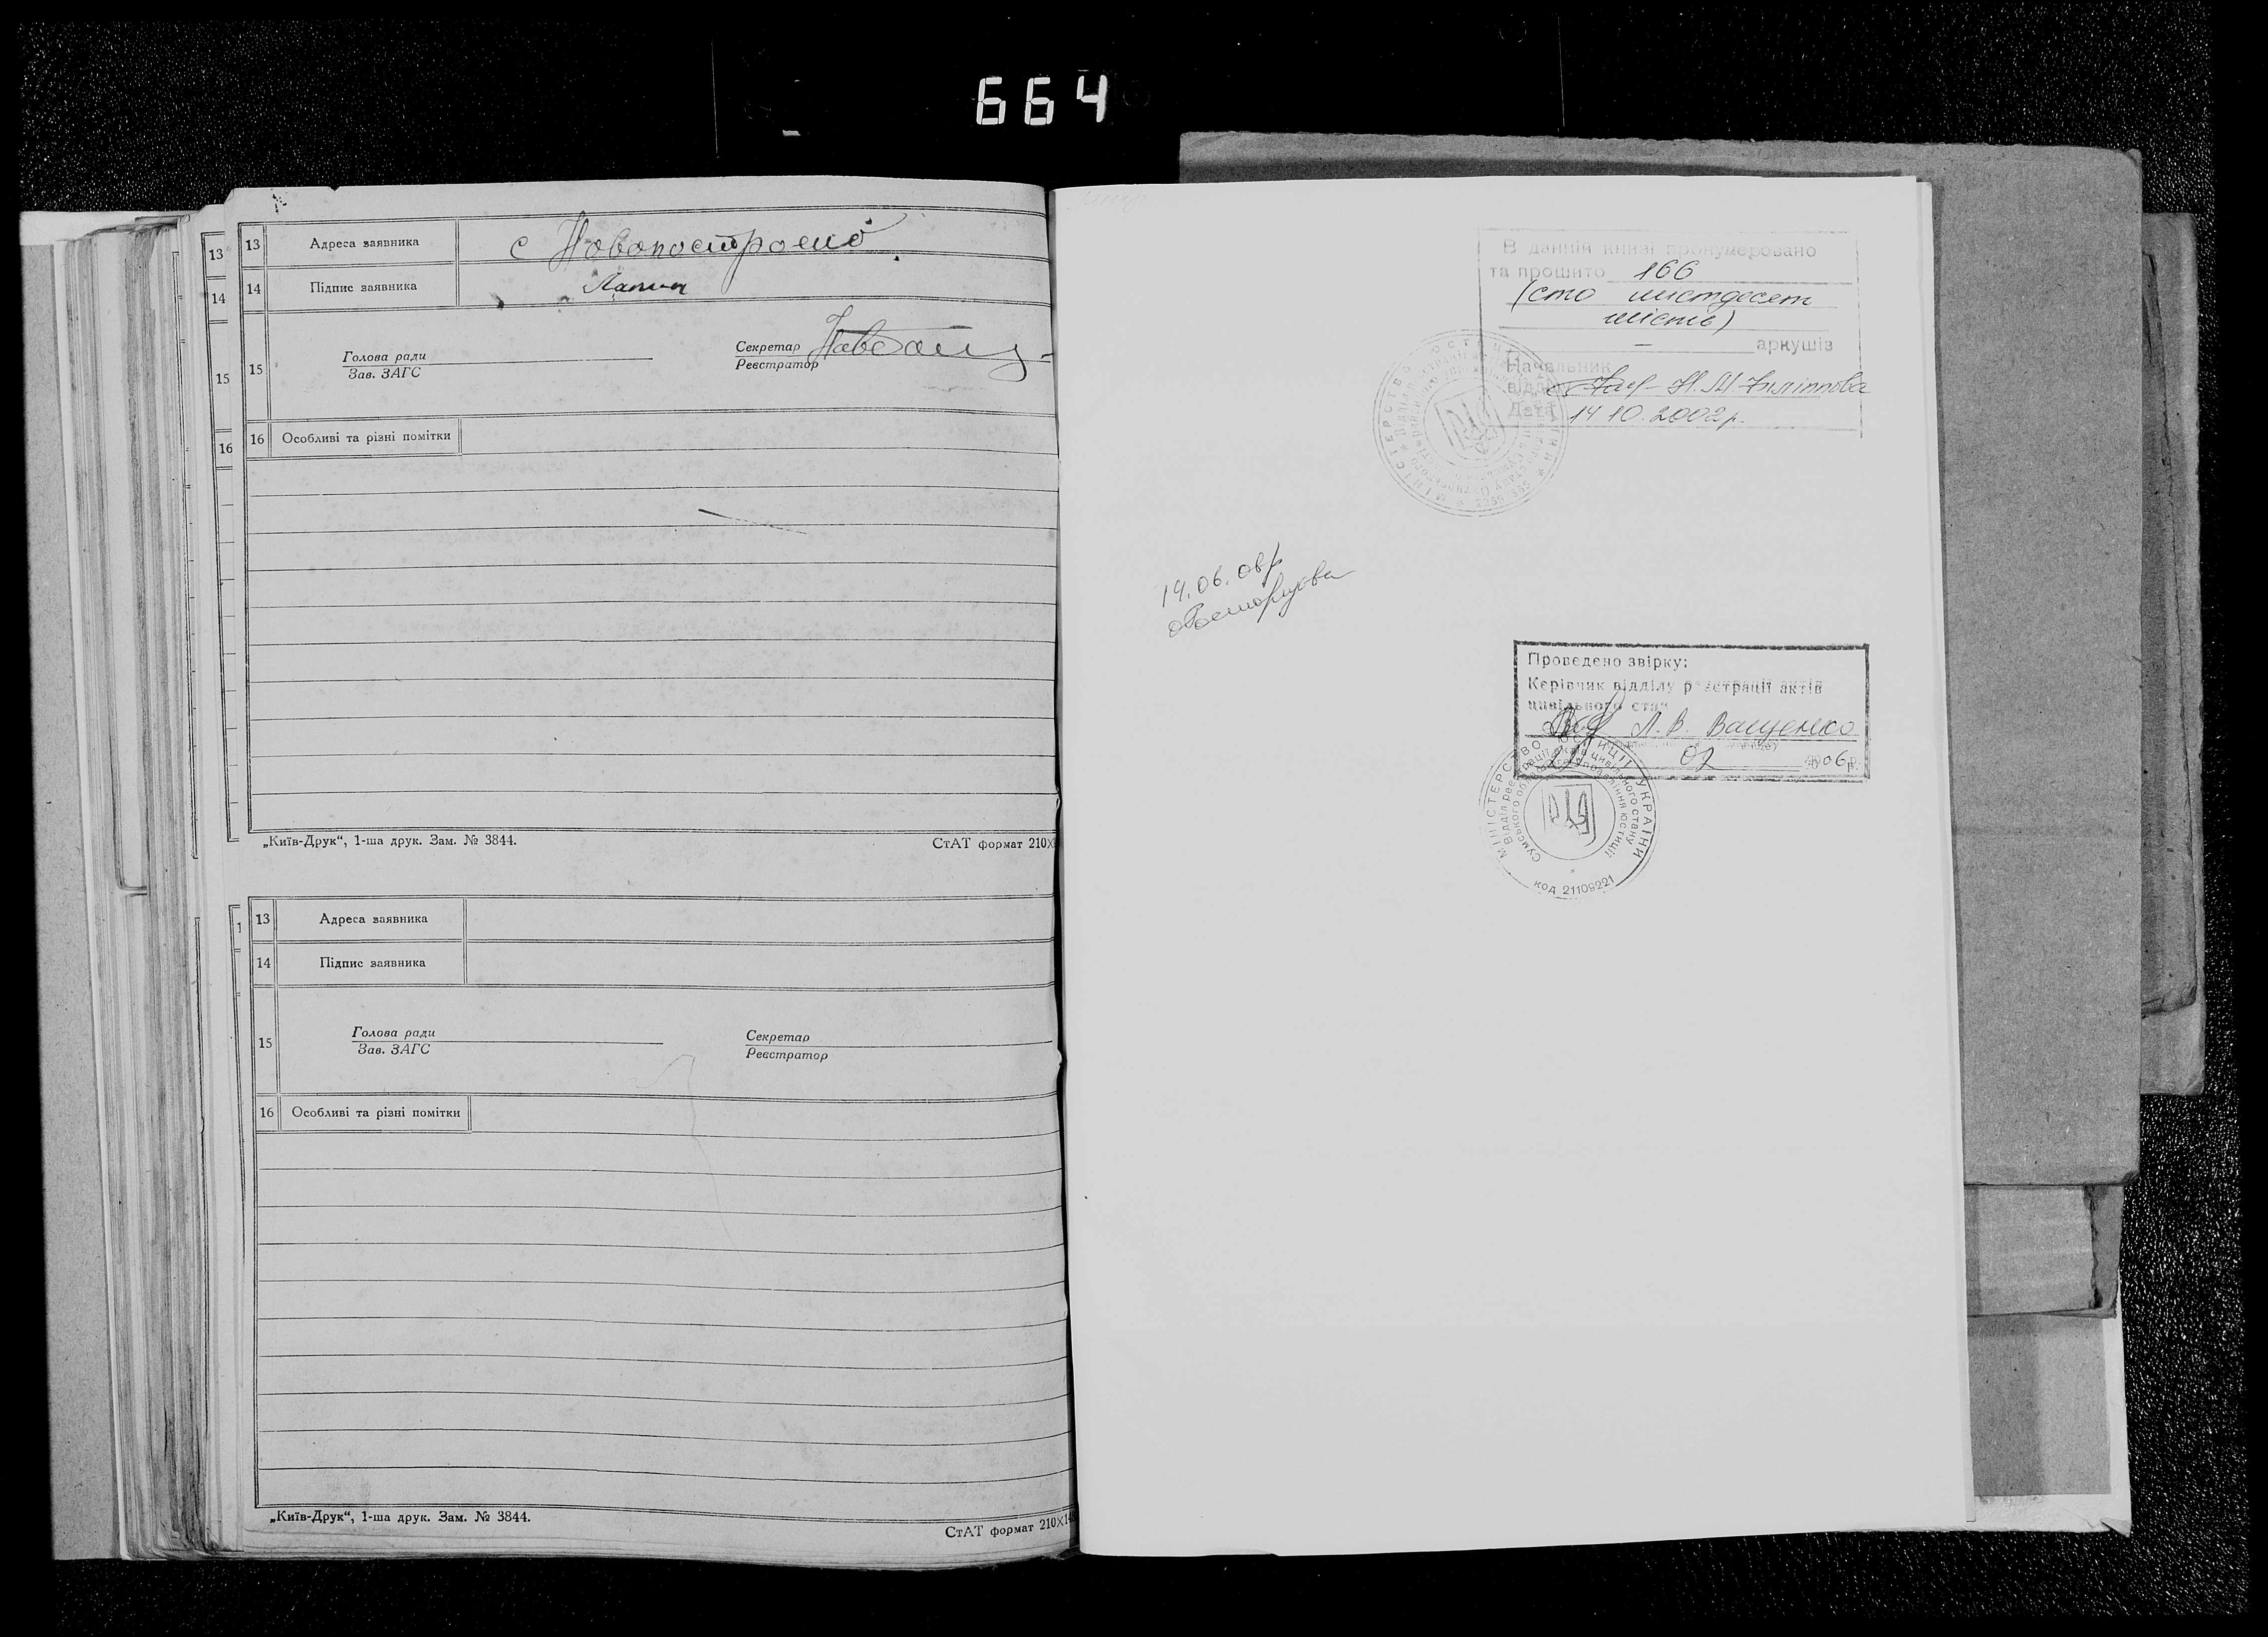 664
13 Адреса заявника с Новопостроено
14 Підпис заявника
15 Голова ради Секретар
Зав. ЗАГС Реєстратор
16 Особливі та різні помітки
„Київ-Друк“, 1-ша друк. Зам. № 3844. СтАТ формат 210×
13 Адреса заявника
14 Підпис заявника
15 Голова ради Секретар
Зав. ЗАГС Реєстратор
16 Особливі та різні помітки
„Київ-Друк“, 1-ша друк. Зам. № 3844. СтАТ формат 210×14
13
14
15
16
В данній книзі пронумеровано
та прошито 166
(сто шистдесят
шість)
— аркушів
Начальник
Н.М. Філіппова
Дата 14.10.2002р.
14.06.06р
Проведено звірку:
Керівник відділу реєстрації актів
цивільного стану
Л.В Ващенко
02 2006р.
МІНІСТЕРСТВО ЮСТИЦІЇ УКРАЇНИ
Відділ реєстрації актів цивільного стану
Сумського обласного управління юстиції
код 21109221